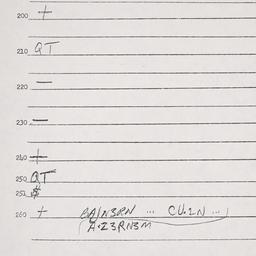 200 +
210 QT
220 —
230 —
240 +
250 QT
252 $
260 + BA/N3RN ... CU.2N ...
A·Z3RN3M